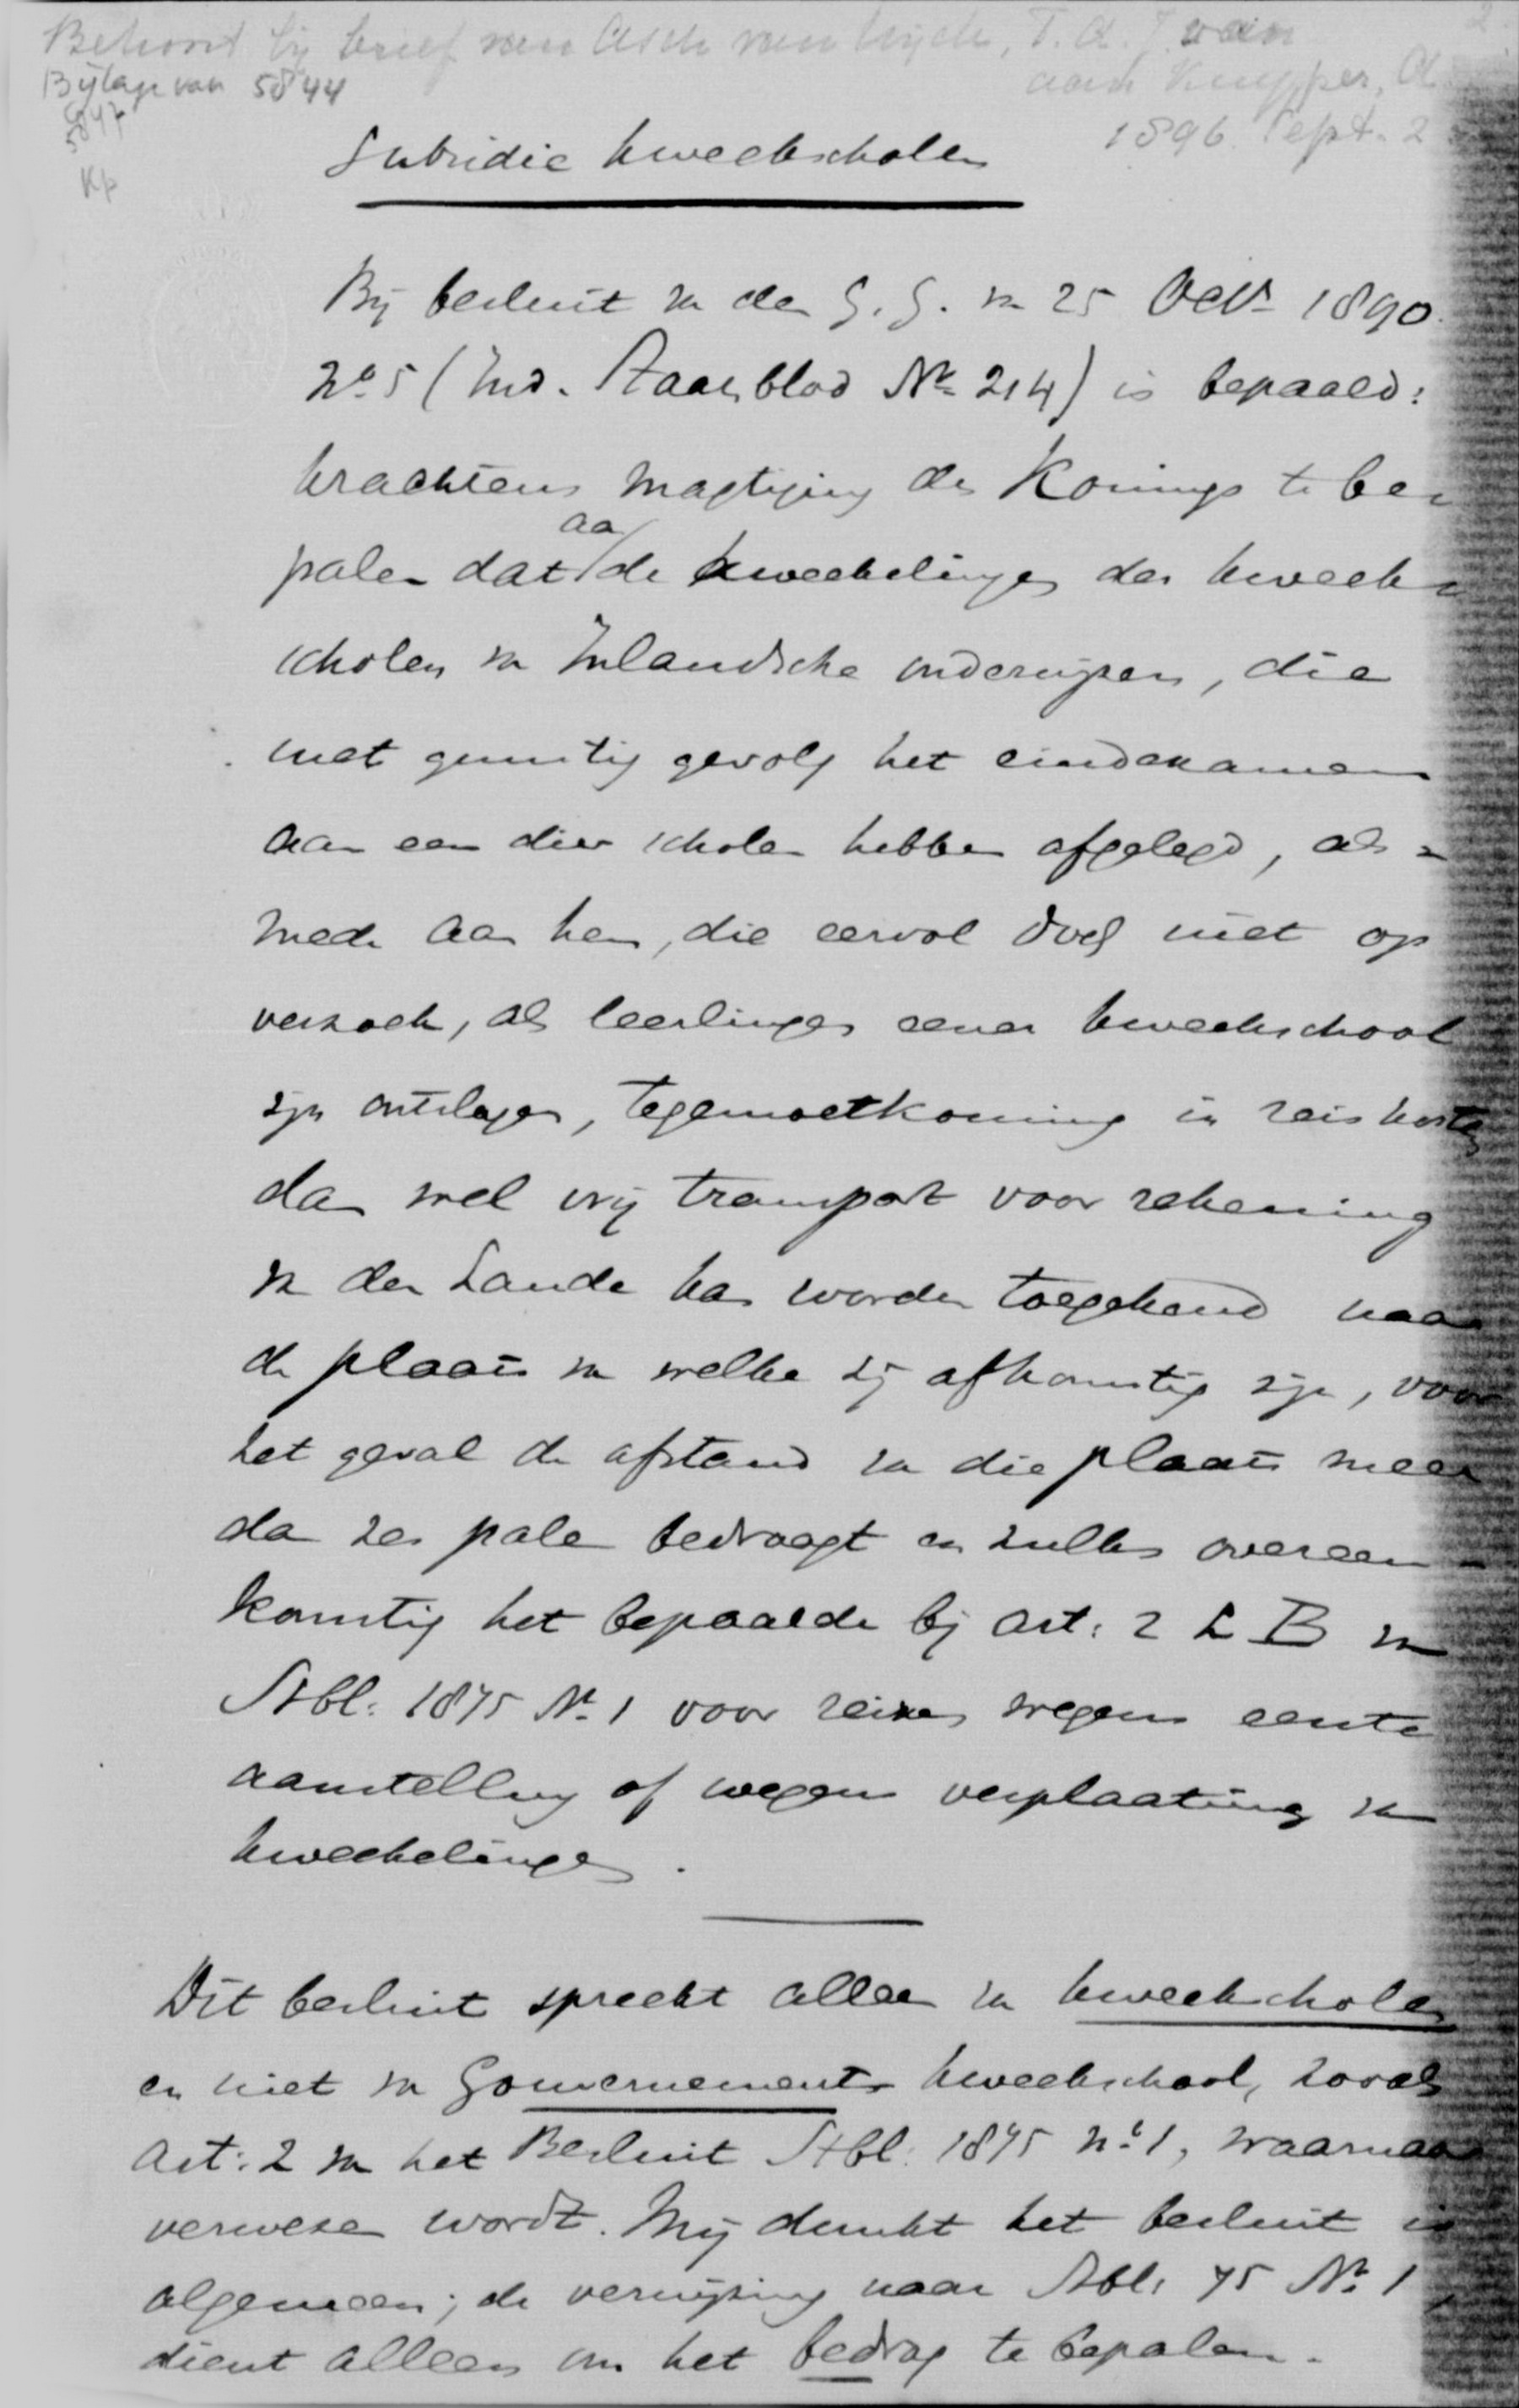 Behoort bij brief van Asch van Wijck, T. A. J. van
aan Kuyper, A
1896 Sept. 2
Bijlage van 5844
5847
Kp
Subsidie kweekscholen
Bij besluit vn den G. G. vn 25 Oct. 1890
No. 5 (Ind. Staatsblad No. 214) is bepaald:
krachtens magtiging des Konings te be-
palen dat aa de kweekelingen der kweek-
scholen vn Inlandsche onderwijzers, die
met gunstig gevolg het eindexamen
aan een dier scholen hebben afgelegd, als-
mede aan hen, die eervol doch niet op
verzoek, als leerlingen eener kweekschool
zijn ontslagen, tegemoetkoming in reiskosten
dan wel vrij transport voor rekening
vn den Lande kan worden toegekend naar
de plaats vn welke zij afkomstig zijn, voor
het geval de afstand vn die plaats meer
dan zes palen bedraagt en zulks overeen-
komstig het bepaalde bij art: 2 L B vn
Stbl: 1875 No. 1 voor reizen wegens eerste
aanstelling of wegens verplaatsing vn
kweekelingen.
Dit besluit spreekt alleen vn kweekscholen
en niet vn Gouvernements kweekschool, zooals
Art: 2 vn het Besluit Stbl: 1875 no. 1, waarnaar
verwezen wordt. Mij dunkt het besluit is
algemeen; de verwijzing naar Stbl: 75 No. 1,
dient alleen om het bedrag te bepalen.